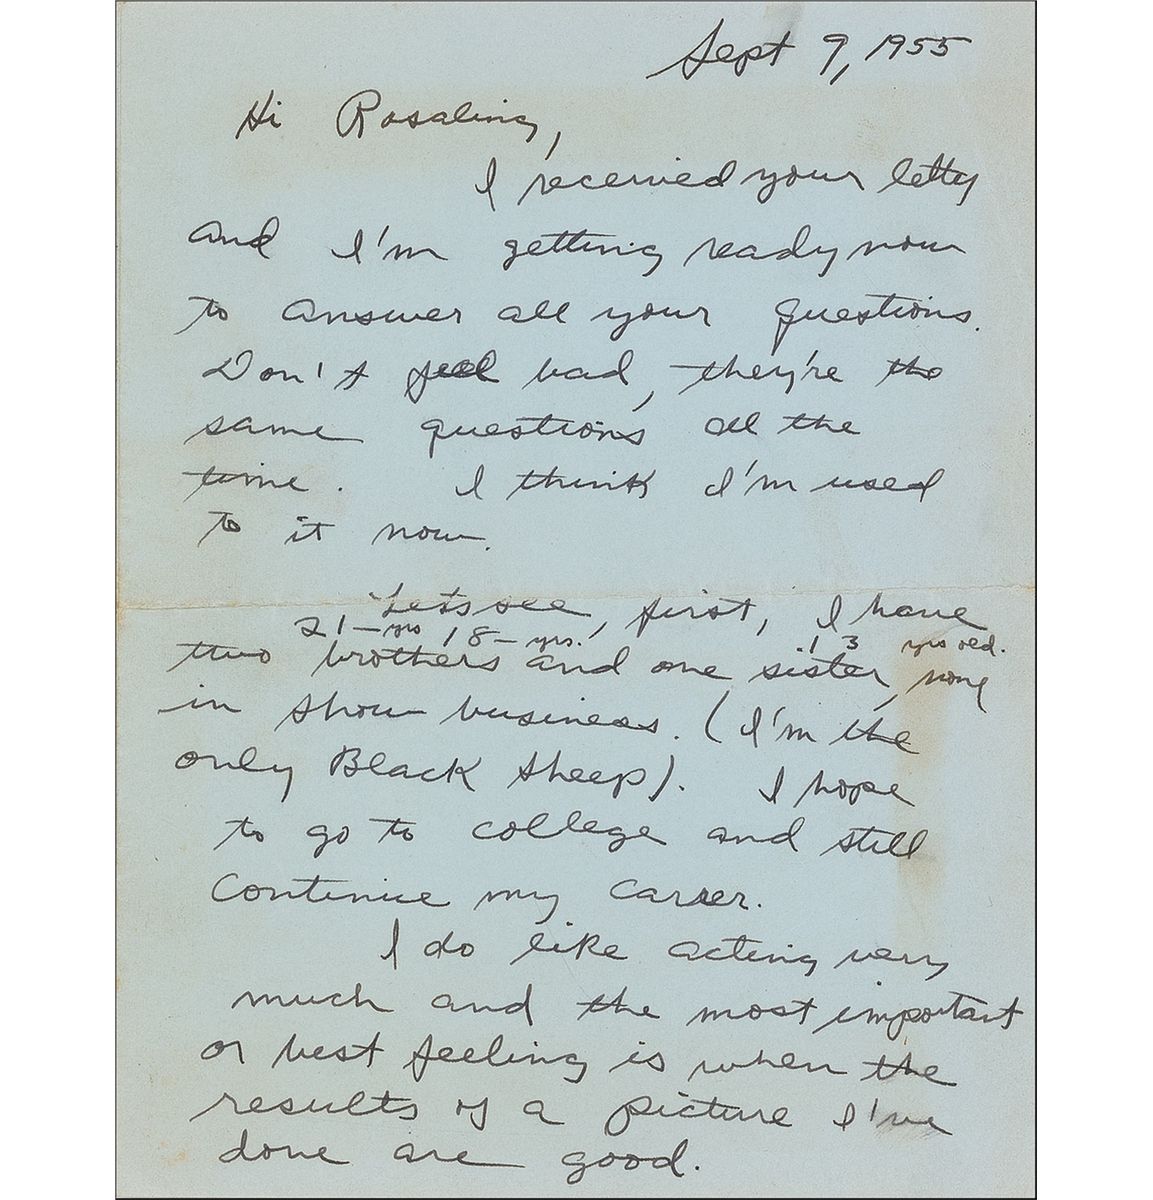 Sept 9, 1955
Hi Rosaling,
I received your letter
and I'm getting ready now
to answer all your questions.
Don't feel bad, they're the
same questions all the
time. I think I'm used
to it now.
Lets see, first, I have
21-yrs 18-yrs. 13 yrs old.
two brothers and one sister, none
in show business. (I'm the
only Black Sheep). I hope
to go to college and still
continue my career.
I do like acting very
much and the most important
or best feeling is when the
results of a picture I've
done are good.